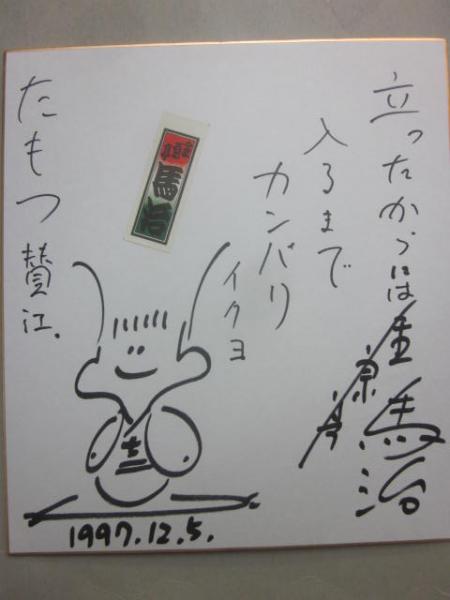 立ったからには
入るまで
カンバリ
イクヨ
馬治
たもつ賛江.
1997.12.5.